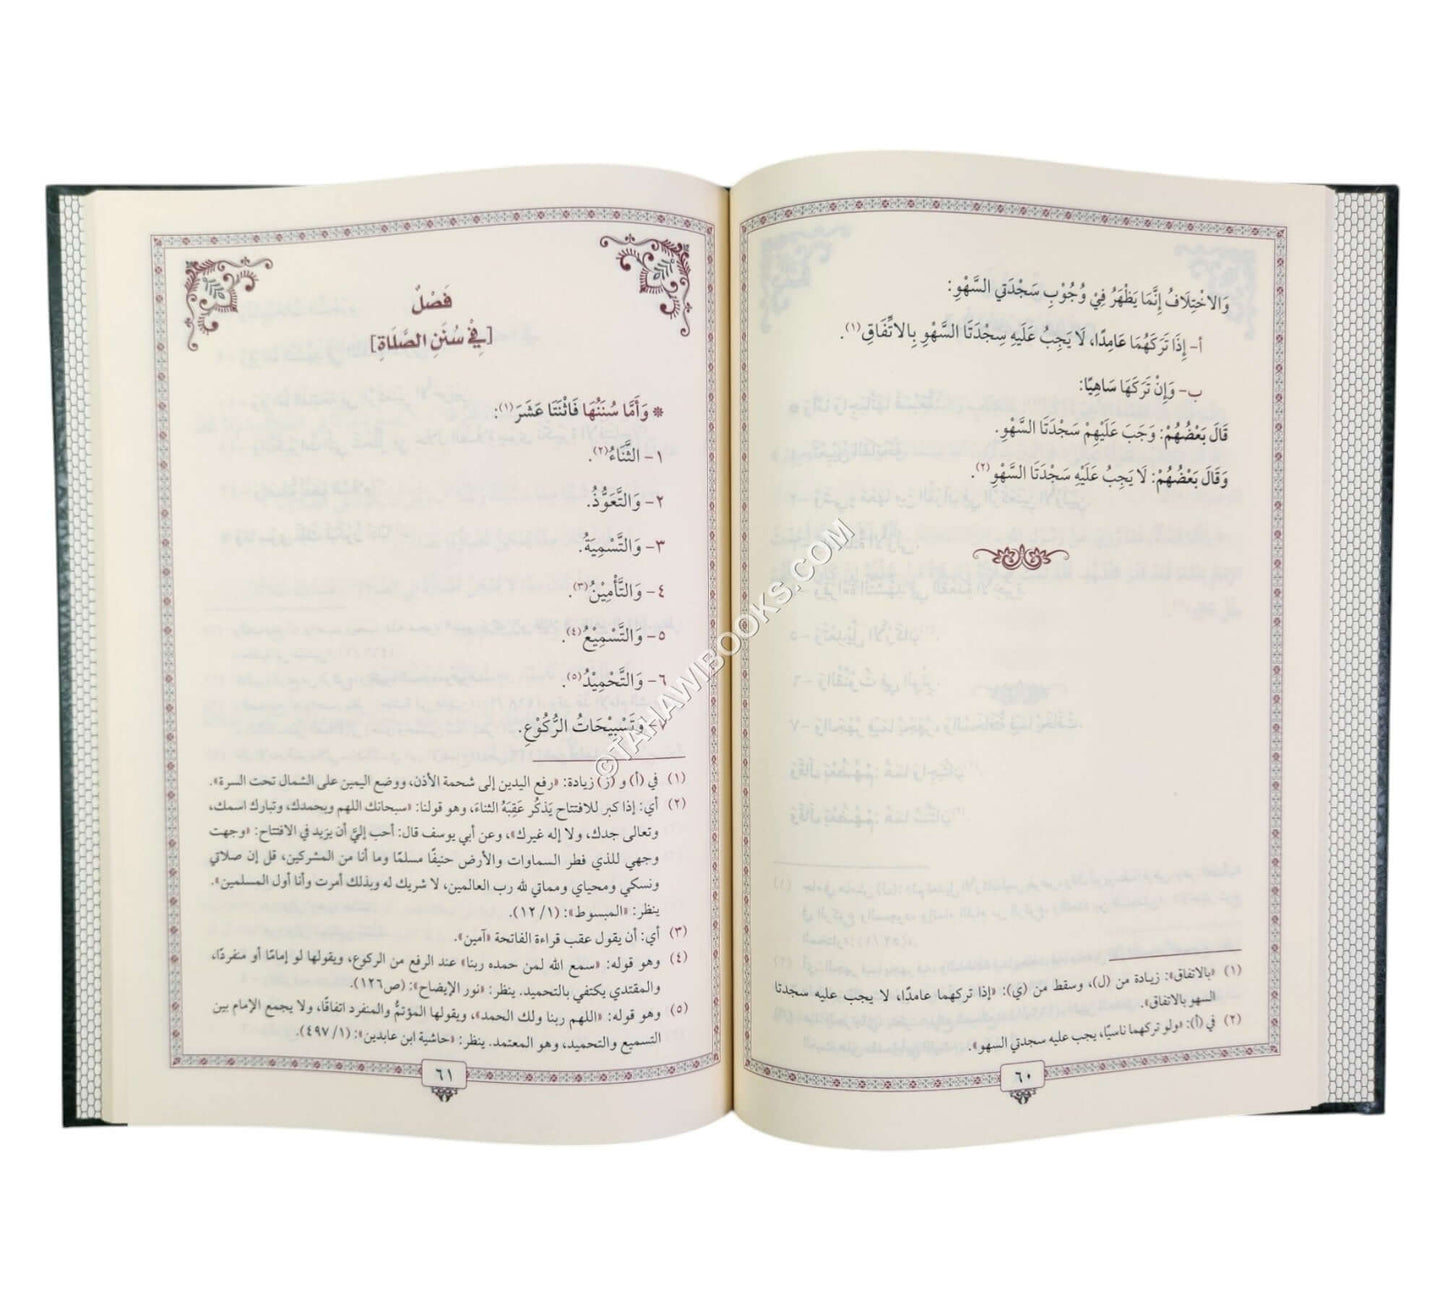 وَالاخْتِلَافُ إِنَّمَا يَظْهَرُ فِيْ وُجُوْبِ سَجْدَتَيِ السَّهْوِ:
أ- إِذَا تَرَكَهُمَا عَامِدًا، لَا يَجِبُ عَلَيْهِ سِجْدَتَا السَّهْوِ بِالاتِّفَاقِ(١).
ب- وَإِنْ تَرَكَهَا سَاهِيًا:
قَالَ بَعْضُهُمْ: وَجَبَ عَلَيْهِمْ سَجْدَتَا السَّهْوِ.
وَقَالَ بَعْضُهُمْ: لَا يَجِبُ عَلَيْهِ سَجْدَتَا السَّهْوِ(٢).
(١) «بالاتفاق»: زيادة من (ل)، وسقط من (ي): «إذا تركهما عامدًا، لا يجب عليه سجدتا
السهو بالاتفاق».
(٢) في (أ): «ولو تركهما ناسيًا، يجب عليه سجدتي السهو».
٦٠
فَصْلٌ
[فِيْ سُنَنِ الصَّلَاةِ]
* وَأَمَّا سُنَنُهَا فَاثْنَتَا عَشَرَ(١):
١- الثَّنَاءُ(٢).
٢- وَالتَّعَوُّذُ.
٣- وَالتَّسْمِيَةُ.
٤- وَالتَّأْمِيْنُ(٣).
٥- وَالتَّسْمِيْعُ(٤).
٦- وَالتَّحْمِيْدُ(٥).
٧- وَتَسْبِيْحَاتُ الرُّكُوْعِ.
(١) في (أ) و(ز) زيادة: «رفع اليدين إلى شحمة الأذن، ووضع اليمين على الشمال تحت السرة».
(٢) أي: إذا كبر للافتتاح يَذكُر عَقِبَهُ الثناءَ، وهو قولنا: «سبحانك اللهم وبحمدك، وتبارك اسمك،
وتعالى جدك، ولا إله غيرك»، وعن أبي يوسف قال: أحب إليَّ أن يزيد في الافتتاح: «وجهت
وجهي للذي فطر السماوات والأرض حنيفًا مسلمًا وما أنا من المشركين، قل إن صلاتي
ونسكي ومحياي ومماتي لله رب العالمين، لا شريك له وبذلك أمرت وأنا أول المسلمين».
ينظر: «المبسوط»: (١/ ١٢).
(٣) أي: أن يقول عقب قراءة الفاتحة «آمين».
(٤) وهو قوله: «سمع الله لمن حمده ربنا» عند الرفع من الركوع، ويقولها لو إمامًا أو منفردًا،
والمقتدي يكتفي بالتحميد. ينظر: «نور الإيضاح»: (ص١٢٦).
(٥) وهو قوله: «اللهم ربنا ولك الحمد»، ويقولها المؤتمُّ والمنفرد اتفاقًا، ولا يجمع الإمام بين
التسميع والتحميد، وهو المعتمد. ينظر: «حاشية ابن عابدين»: (١/ ٤٩٧).
٦١
©TAHAWIBOOKS.COM